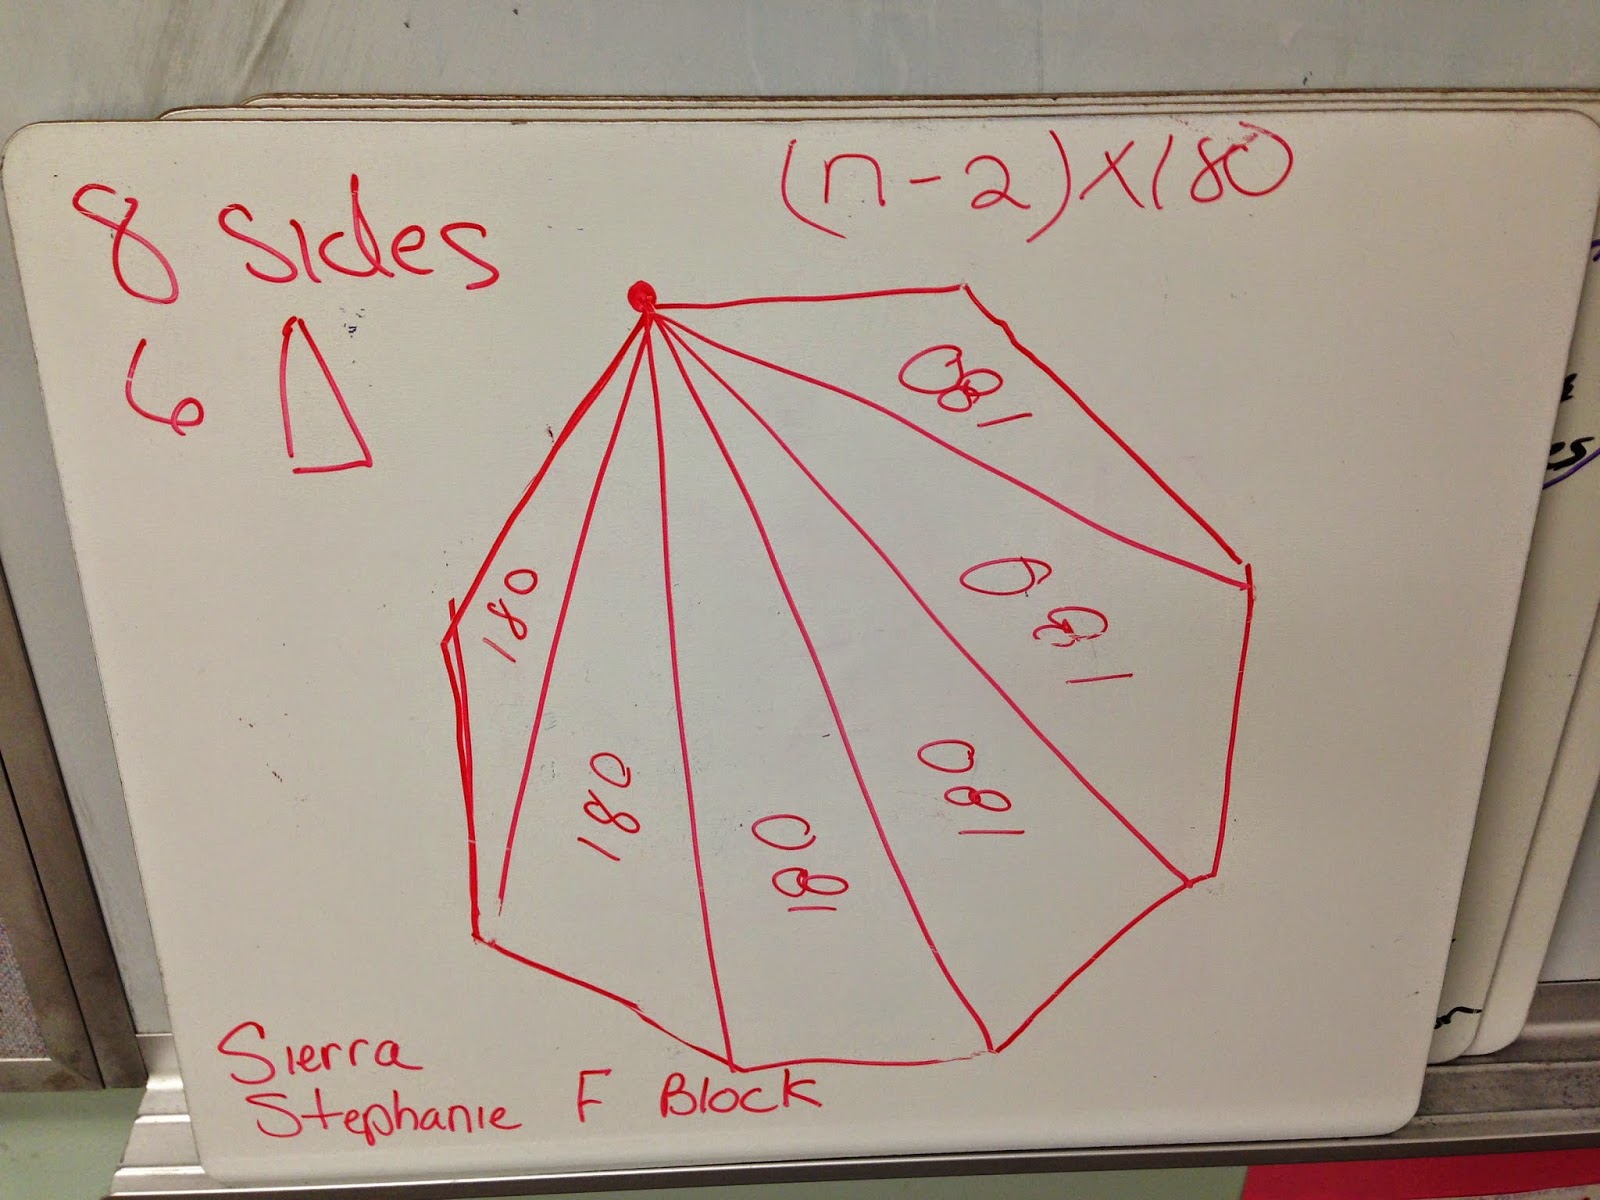 8 sides
(n-2)x180
6 Δ
180
180
180
180
180
180
Sierra
Stephanie F Block